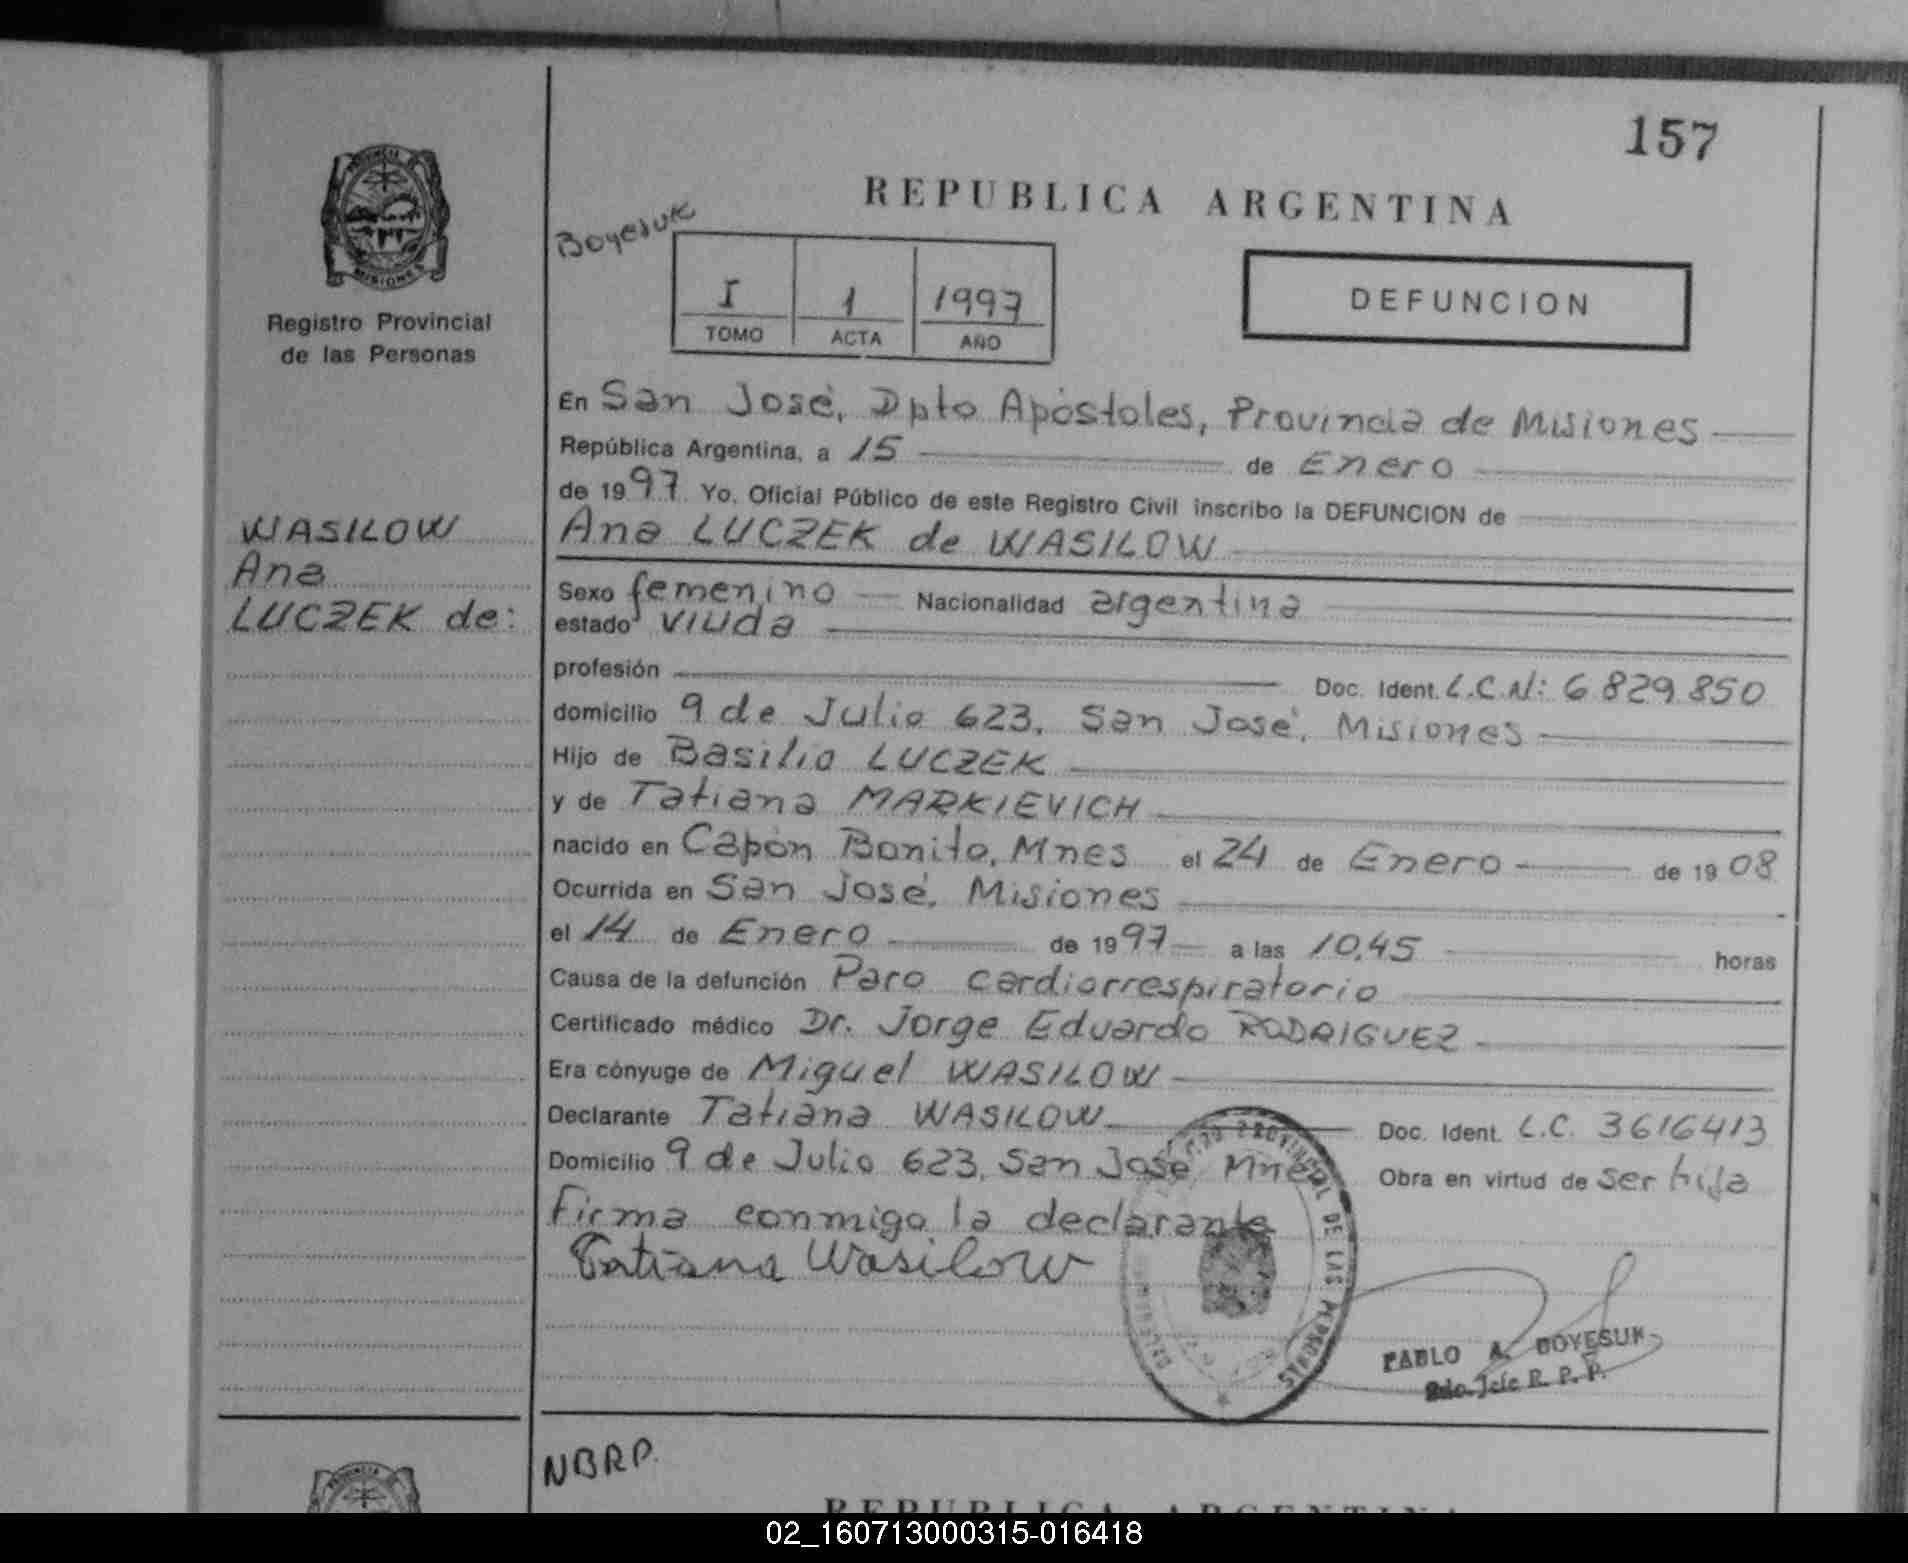 157
REPUBLICA ARGENTINA
Boyesuk
I 1 1997
TOMO ACTA AÑO
DEFUNCION
PROVINCIA DE
MISIONES
Registro Provincial
de las Personas
WASILOW
Ana
LUCZEK de:
En San José, Dpto Apóstoles, Provincia de Misiones
República Argentina, a 15 de Enero
de 1997 Yo, Oficial Público de este Registro Civil inscribo la DEFUNCION de
Ana LUCZEK de WASILOW
Sexo femenino Nacionalidad argentina
estado viuda
profesión Doc. Ident. L.C.N: 6.829.850
domicilio 9 de Julio 623, San José, Misiones
Hijo de Basilio LUCZEK
y de Tatiana MARKIEVICH
nacido en Capón Bonito, Mnes el 24 de Enero de 1908
Ocurrida en San José, Misiones
el 14 de Enero de 1997 a las 10,45 horas
Causa de la defunción Paro cardiorrespiratorio
Certificado médico Dr. Jorge Eduardo RODRIGUEZ
Era cónyuge de Miguel WASILOW
Declarante Tatiana WASILOW Doc. Ident. L.C. 3616413
Domicilio 9 de Julio 623, San José, Mnes Obra en virtud de ser hija
Firma conmigo la declarante
Tatiana Wasilow
PROVINCIAL DE LAS PERSONAS
PABLO A. BOYESUK
Jefe R. P. P.
NBRP.
REPUBLICA ARGENTINA
02_160713000315-016418